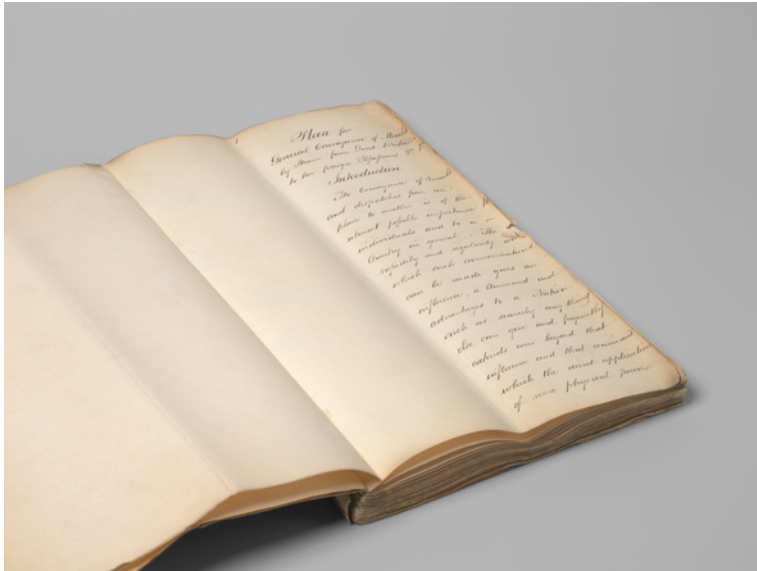 Plan for
General Conveyance of Mails
by Steam from Great Britain
to the foreign
Introduction
The Conveyance of Mails
and dispatches from one
place to another is of the
utmost possible importance to
individuals and to a
Country in general. The
rapidity and regularity with
which such communications
can be made gives an
influence, a Command and
advantages to a Nation
such as scarcely any thing
else can give and frequently
extends over beyond that
influence and that command
which the direct application
of mere physical power